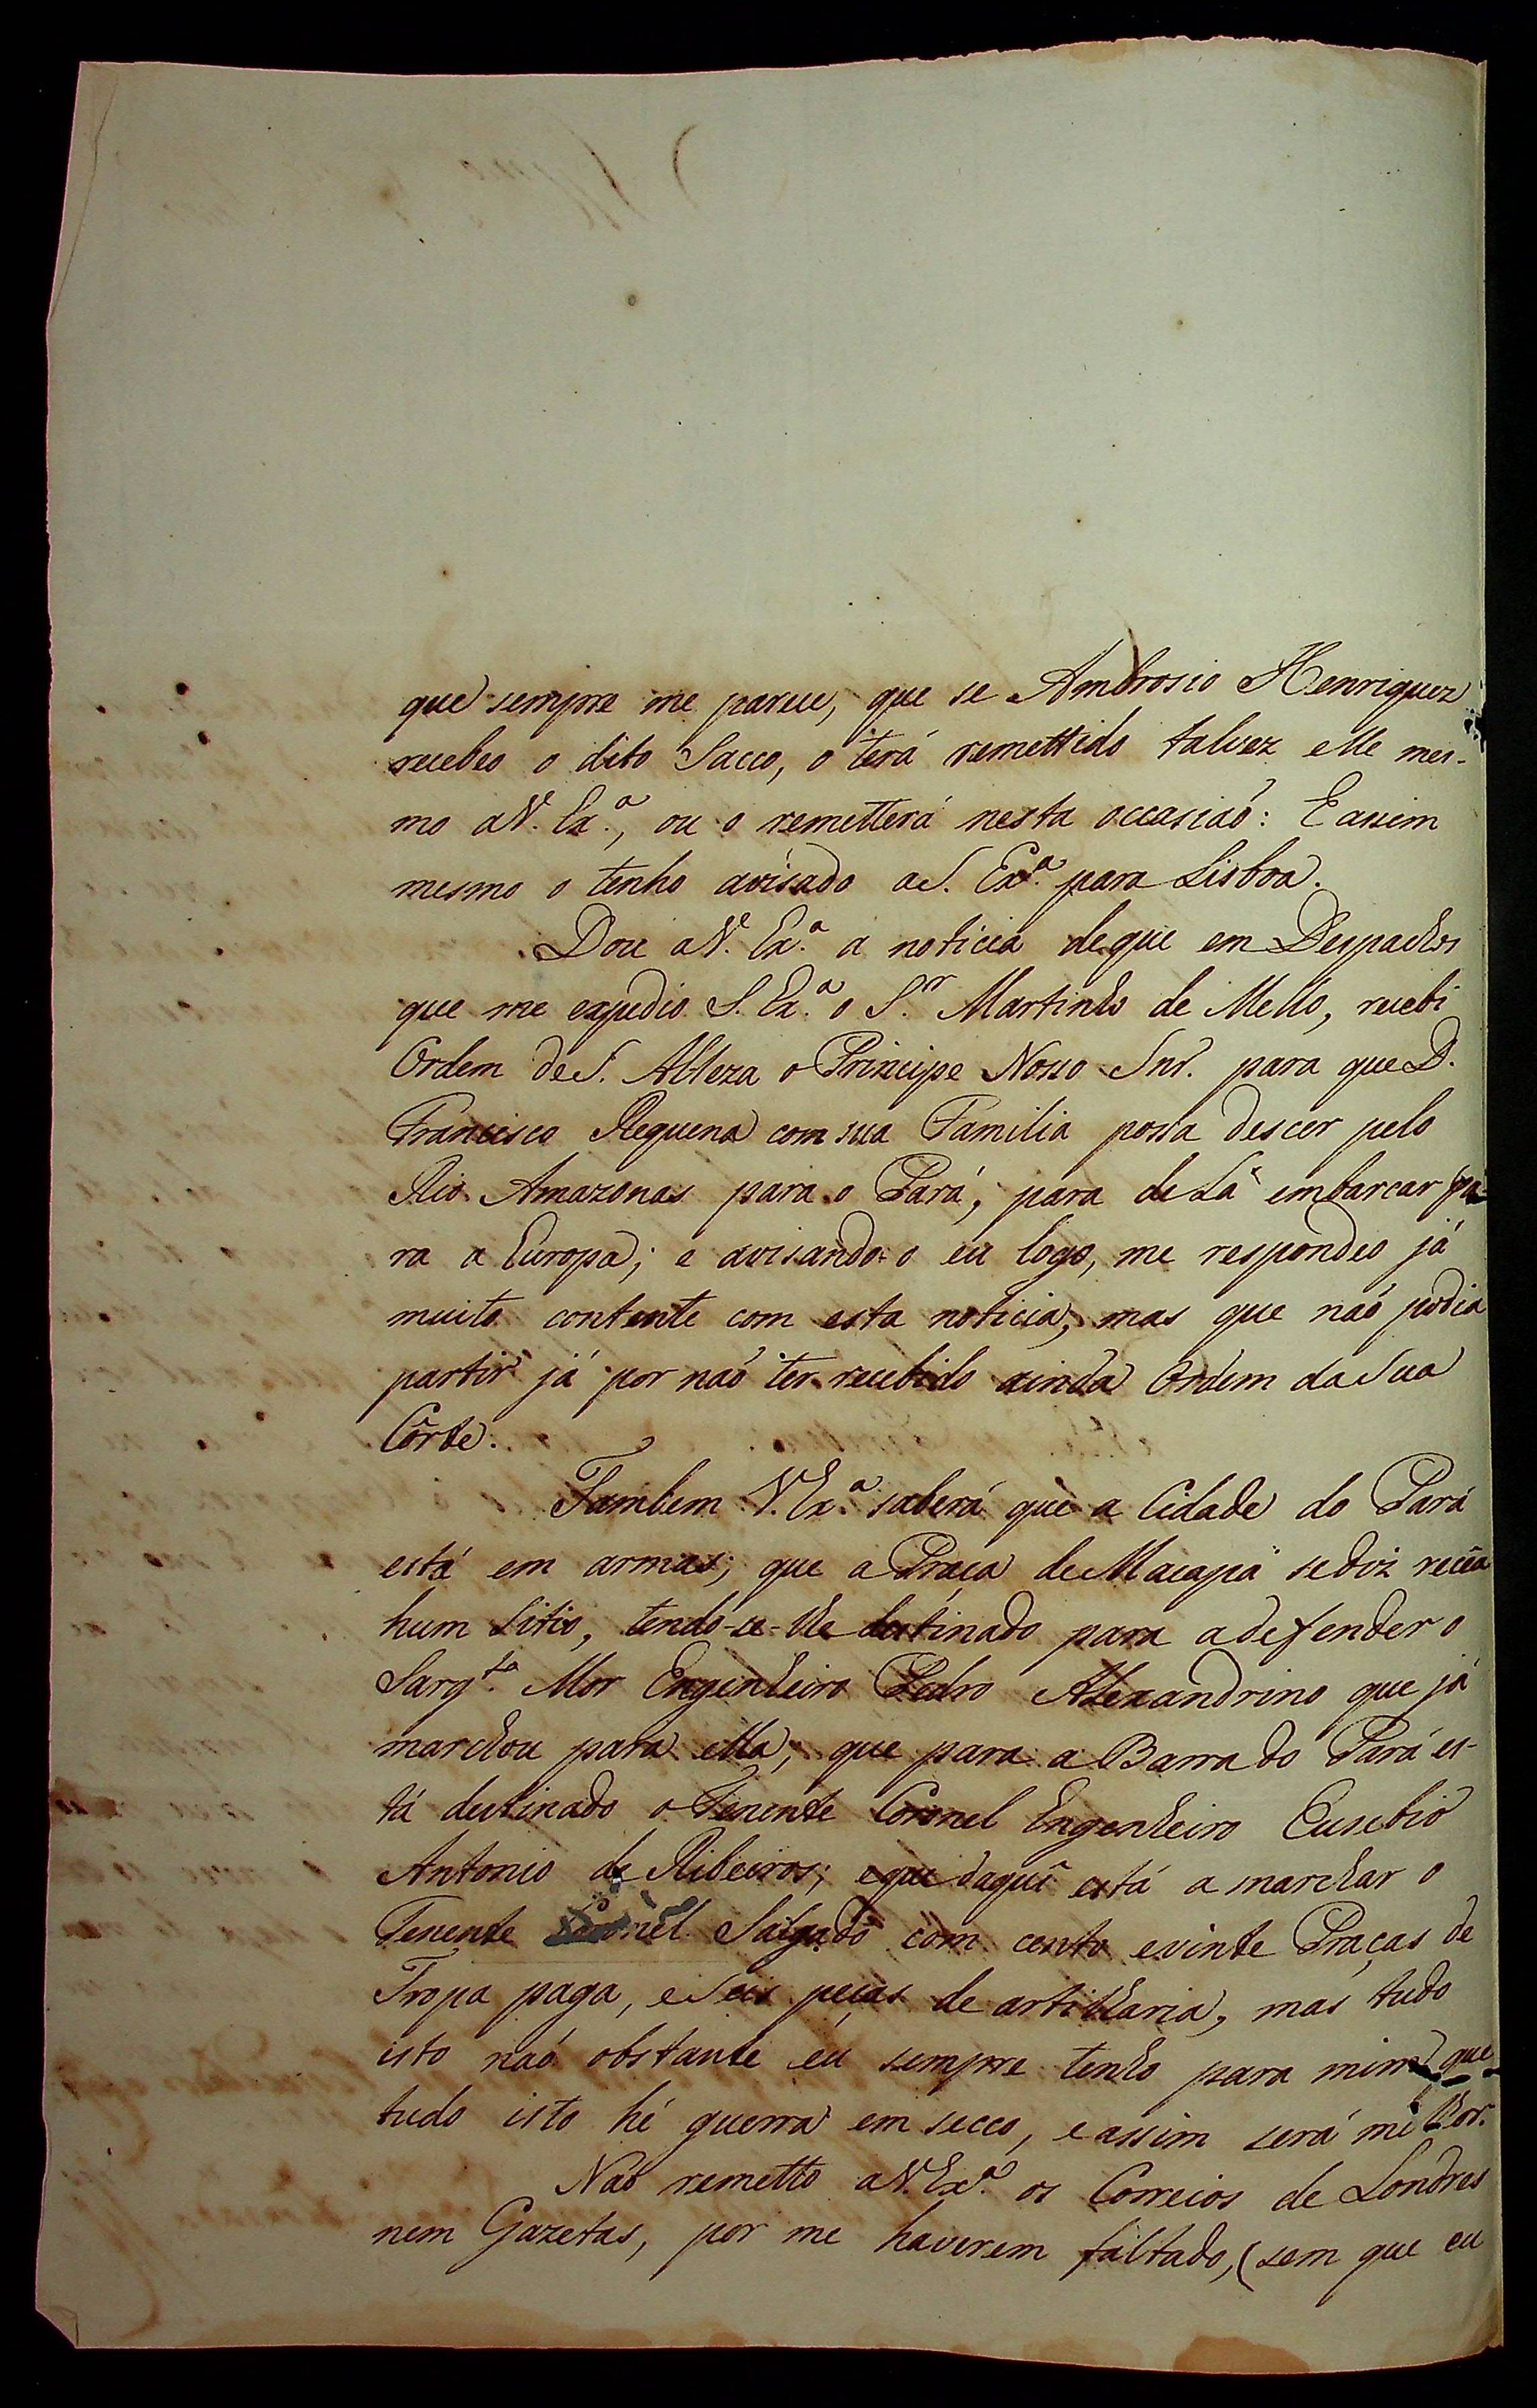 que sempre me parece, que se Ambrosio Henriquez
recebeo o dito Sacco, o terá remettido talvez elle mes-
mo a V. Ex.ª, ou o remetterá nesta occasiaõ: E assim
mesmo o tenho avisado a S. Ex.ª para Lisboa.
Dou a V. Ex.ª a noticia de que em Despachos
que me expedio S. Ex.ª o S.r Martinho de Mello, recebi
Ordem de S. Alteza o Principe Nosso Snr. para que D.
Francisco Requena com sua Familia possa descer pelo
Rio Amazonas para o Pará, para de Lá embarcar pa-
ra a Europa; e avisando-o eu logo, me respondeo já
muito contente com esta noticia, mas que naõ podia
partir já por naõ ter recebido ainda Ordem da Sua
Côrte.
Tambem V. Ex.ª saberá que a Cidade do Pará
está em armas; que a Praça de Macapá se diz recêa
hum Sitio, tendo-se-lhe destinado para a defender o
Sarg.to Mor Engenheiro Pedro Alexandrino que já
marchou para ella; que para a Barra do Pará es-
tá destinado o Tenente Coronel Engenheiro Eusebio
Antonio de Ribeiros; e que daqui está a marchar o
Tenente Coronel Salgado com cento e vinte Praças de
Tropa paga, e Seis peças de artilharia, mas tudo
isto naõ obstante eu sempre tenho para mim que
tudo isto hé guerra em secco, e assim será milhor.
Naõ remetto a V. Ex.ª os Correios de Londres
nem Gazetas, por me haverem faltado, (sem que eu